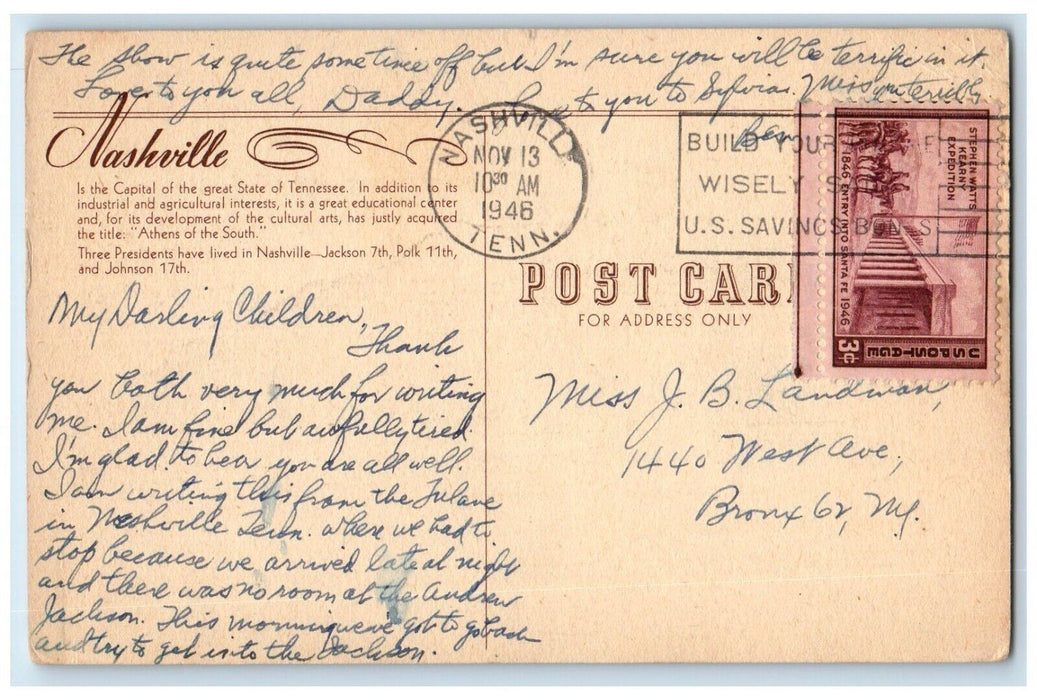 The show is quite sometime off but I'm sure you will be terrific in it.
Love to you all, Daddy. to you to Sylvia. Miss you terribly.
Ben
Nashville
Is the Capital of the great State of Tennessee. In addition to its
industrial and agricultural interests, it is a great educational center
and, for its development of the cultural arts, has justly acquired
the title: "Athens of the South."
Three Presidents have lived in Nashville—Jackson 7th, Polk 11th,
and Johnson 17th.
NASHVILLE
NOV 13
10 30 AM
1946
TENN.
BUILD YOUR
WISELY
U.S. SAVINGS BONDS
STEPHEN WATTS
KEARNY
EXPEDITION
1846 ENTRY INTO SANTA FE 1946
3¢
U S POSTAGE
POST CARD
FOR ADDRESS ONLY
My Darling Children,
Thank
you both very much for writing
me. I am fine but awfully tired.
I'm glad to hear you are all well.
I am writing this from the Tulane
in Nashville Tenn. where we had to
stop because we arrived late at night
and there was no room at the Andrew
Jackson. This morning we got to go back
and try to get into the Jackson.
Miss J. B. Landman,
1440 West Ave,
Bronx 62, NY.